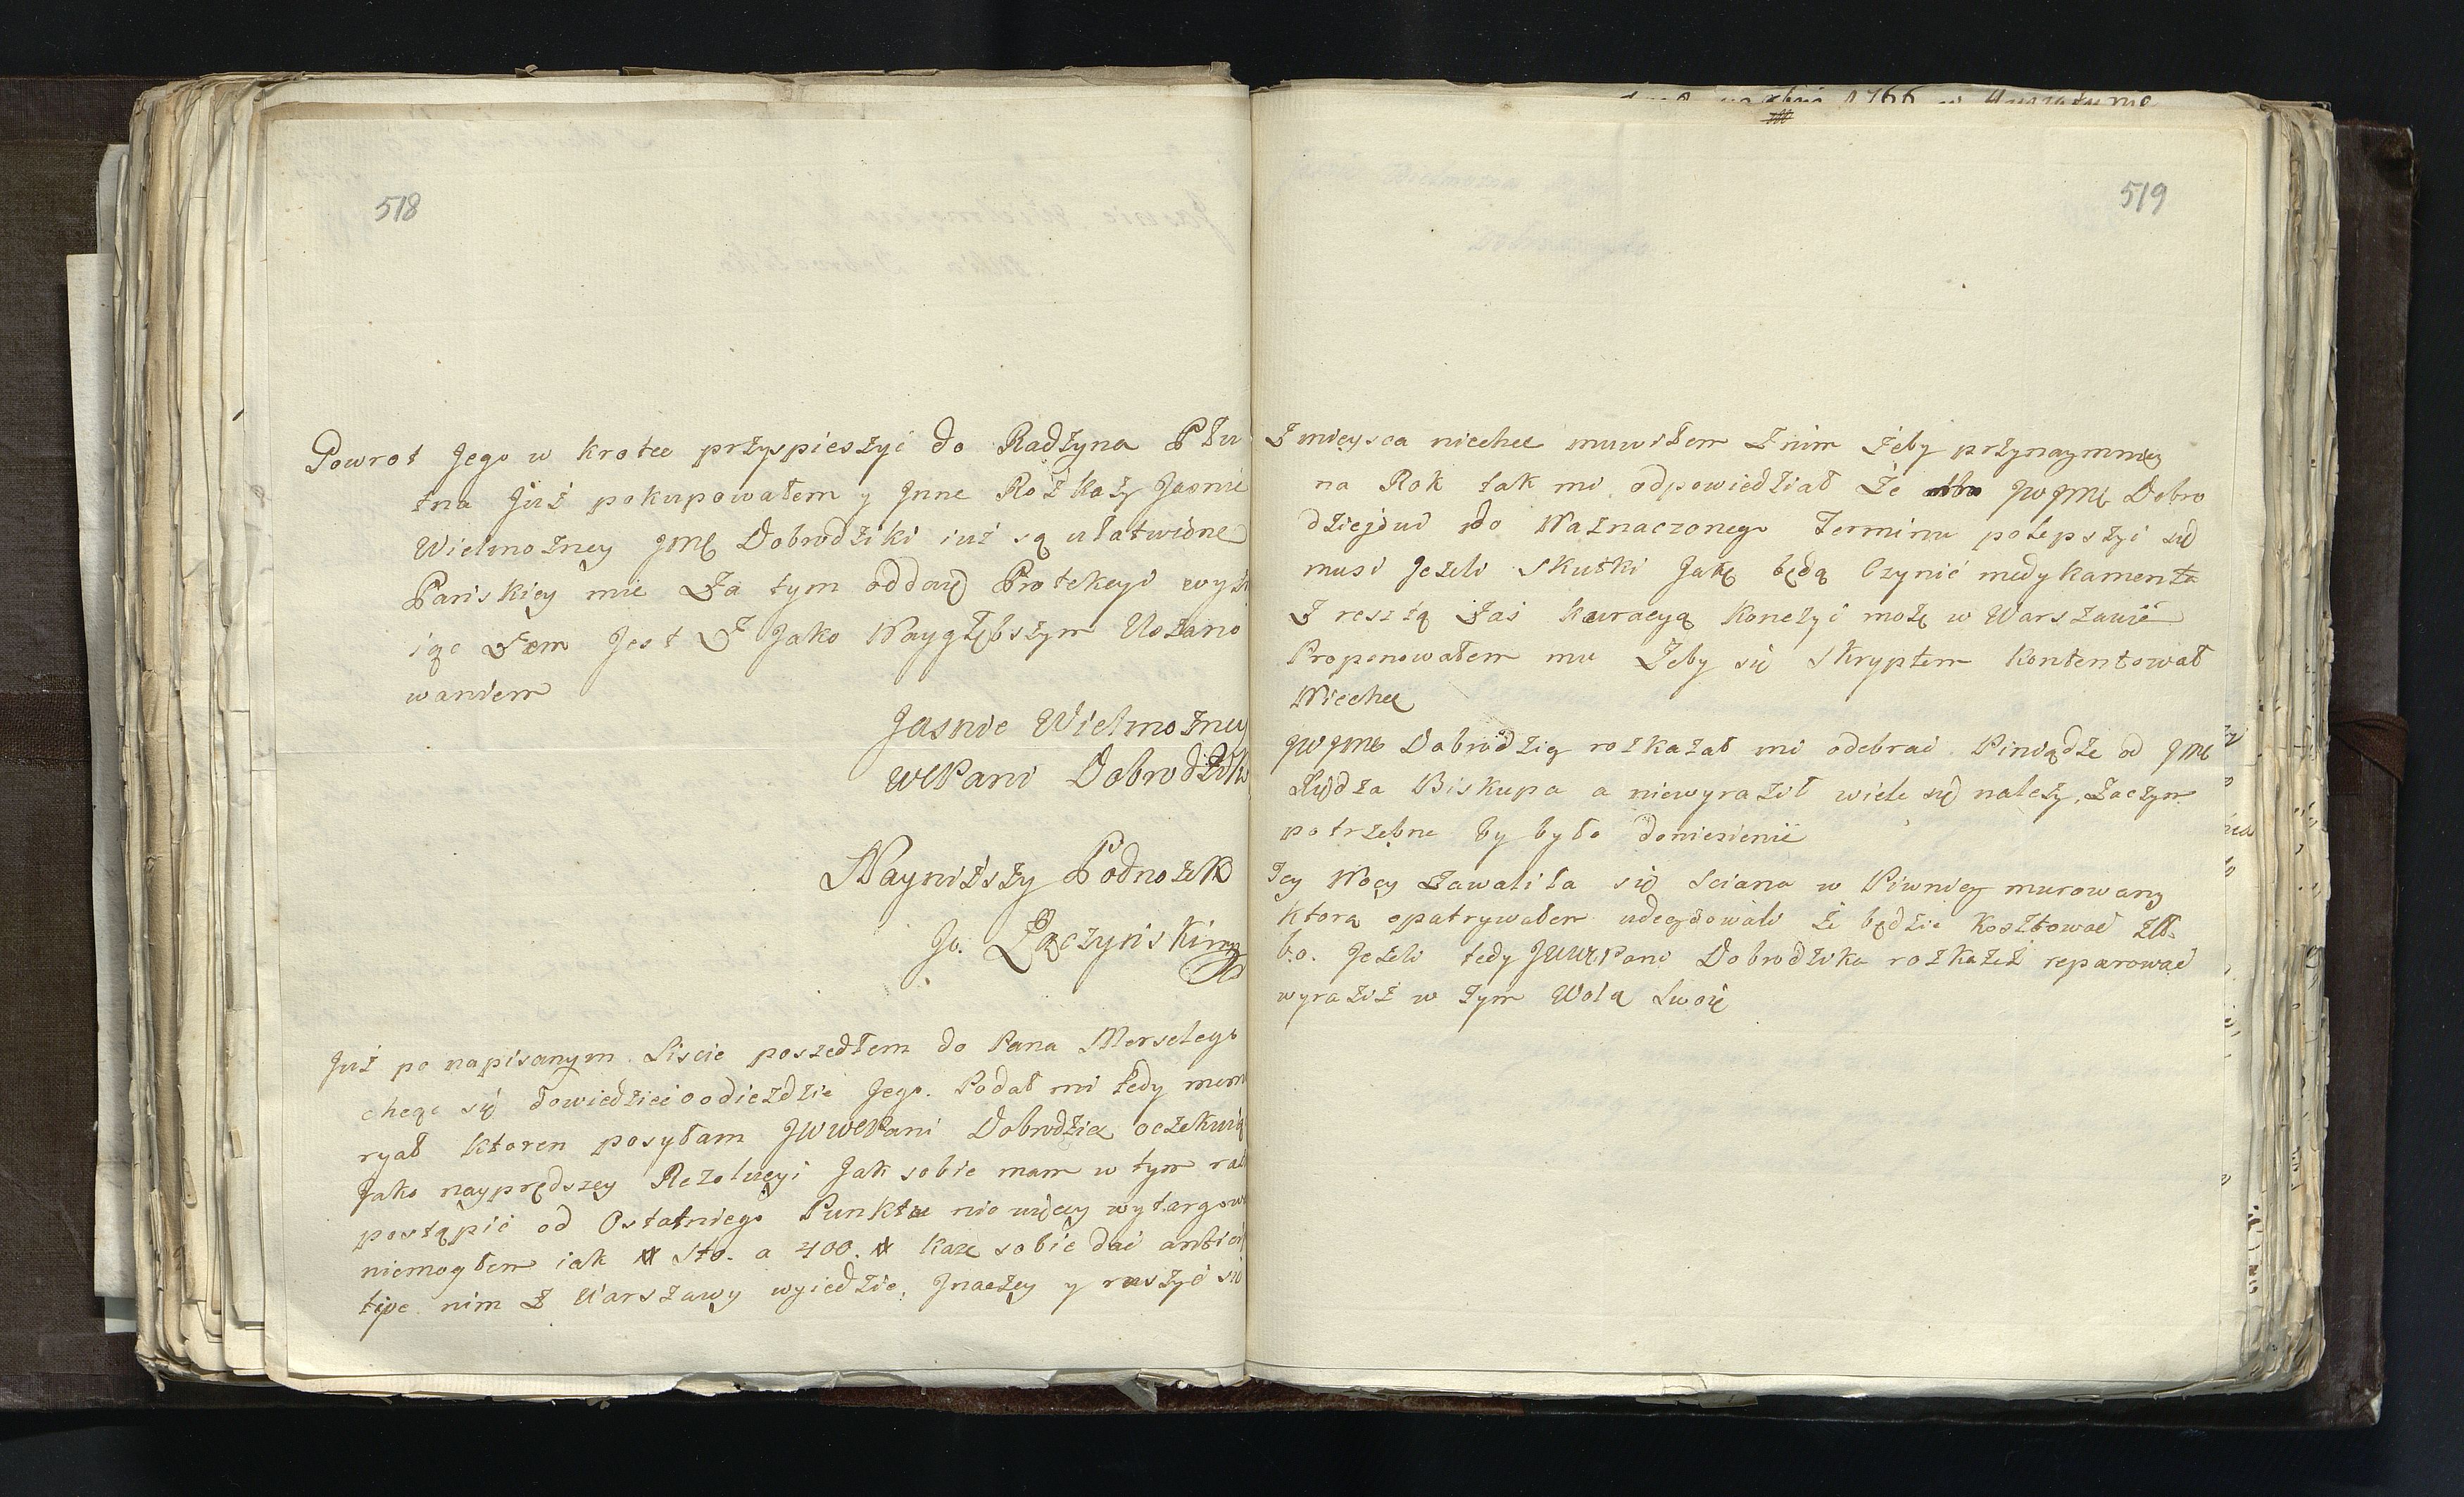 518
Powrot Jego w krotce przyspieszyć do Radzyna Płu
tna Już pokupowałem y Jnne Rozkazy Jasnie
Wielmożney JMC Dobrodziki iuż są ułatwione
Pańskiey mie Za tym oddaię Protekcyi
iąc Jest Z Jako Naygłębszym Uszano
waniem
Jasnie Wielmożney
WCPani Dobrodziki
Nayniższy Podnożek
Jo. Łączyński
Już po napisanym Liscie poszedłem do Pana Merselego
chcąc się dowiedzieć o odieździe Jego. Podał mi tedy mem
ryał ktoren posyłam JWWCPani Dobrodzice oczekuię
Jako nayprędszey Rezolucyi Jak sobie mam w tym
postąpić od Ostatniego Punktu nie więcey wytargow
niemogłem iak # Sto. a 400. # każe sobie dać
nim Z Warszawy wyiedzie, Jnaczey y ruszyć się
1766
519
Z mieysca niechce muwiłem Znim Zeby przynaymniey
na Rok tak mi odpowiedział Że JWJMC Dobro
do Naznaczonego Terminu polepszyć się
musi Jeżeli Skutki Jakę będą Czynić medykamenta
Z resztą Zaś kuracyą Konczyć możę w Warszawie
Proponowałem mu Żeby się Skryptem Kontentował
Niechce
JWJMC Dobrodziey rozkazał mi odebrać Piniądze od JMC
Xiędza Biskupa a niewyraził wiele się należy, Zaczym
potrzebne by było doniesienie
Tey Nocy Zawaliła się Sciana w Piwnicy murowaney
Ktorą opatrywałem udecydowali że będzie kosztować Zł.
60. Jeżeli tedy JWWCPani Dobrodzika rozkażeż reparować
wyraziż w tym Wolą Swoię